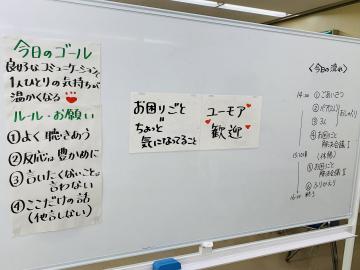 今日のゴール
良好なコミュニケーションで
1人ひとりの気持ちが
温かくなる
ルール・お願い
①よく聴きあう
②反応は豊かめに
③言いたくないことは
言わない
④ここだけの話
(他言しない)
お困りごと
ちょっと
気になってること
ユーモア
歓迎
〈今日の流れ〉
①ごあいさつ
④お困りごと
解決会議Ⅰ
(休憩)
⑤お困りごと
解決会議Ⅱ
⑥ふりかえり
終了